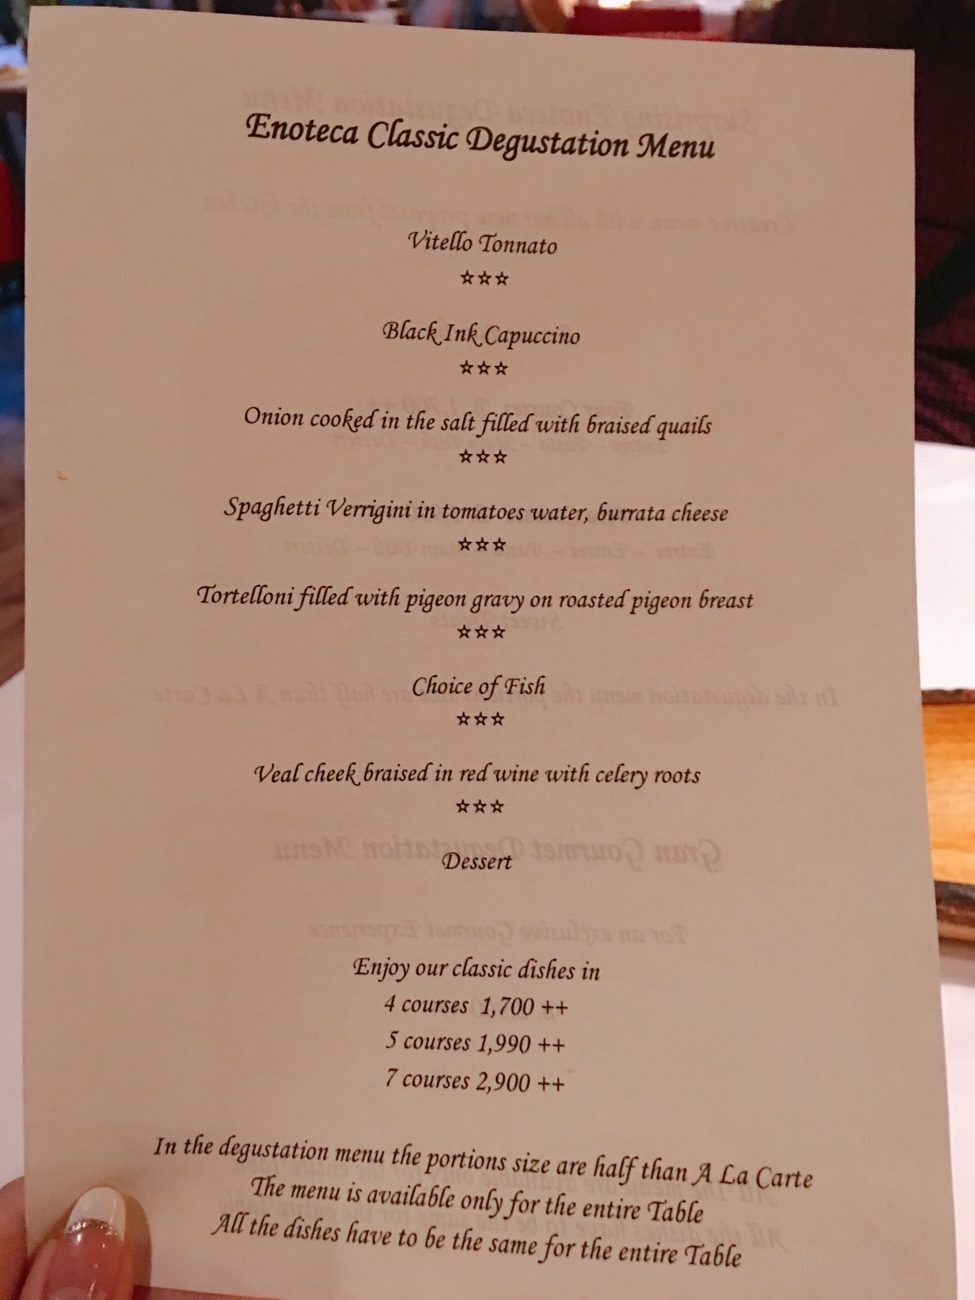 Enoteca Classic Degustation Menu
Vitello Tonnato
☆☆☆
Black Ink Capuccino
☆☆☆
Onion cooked in the salt filled with braised quails
☆☆☆
Spaghetti Verrigini in tomatoes water, burrata cheese
☆☆☆
Tortelloni filled with pigeon gravy on roasted pigeon breast
☆☆☆
Choice of Fish
☆☆☆
Veal cheek braised in red wine with celery roots
☆☆☆
Dessert
Enjoy our classic dishes in
4 courses 1,700 ++
5 courses 1,990 ++
7 courses 2,900 ++
In the degustation menu the portions size are half than A La Carte
The menu is available only for the entire Table
All the dishes have to be the same for the entire Table